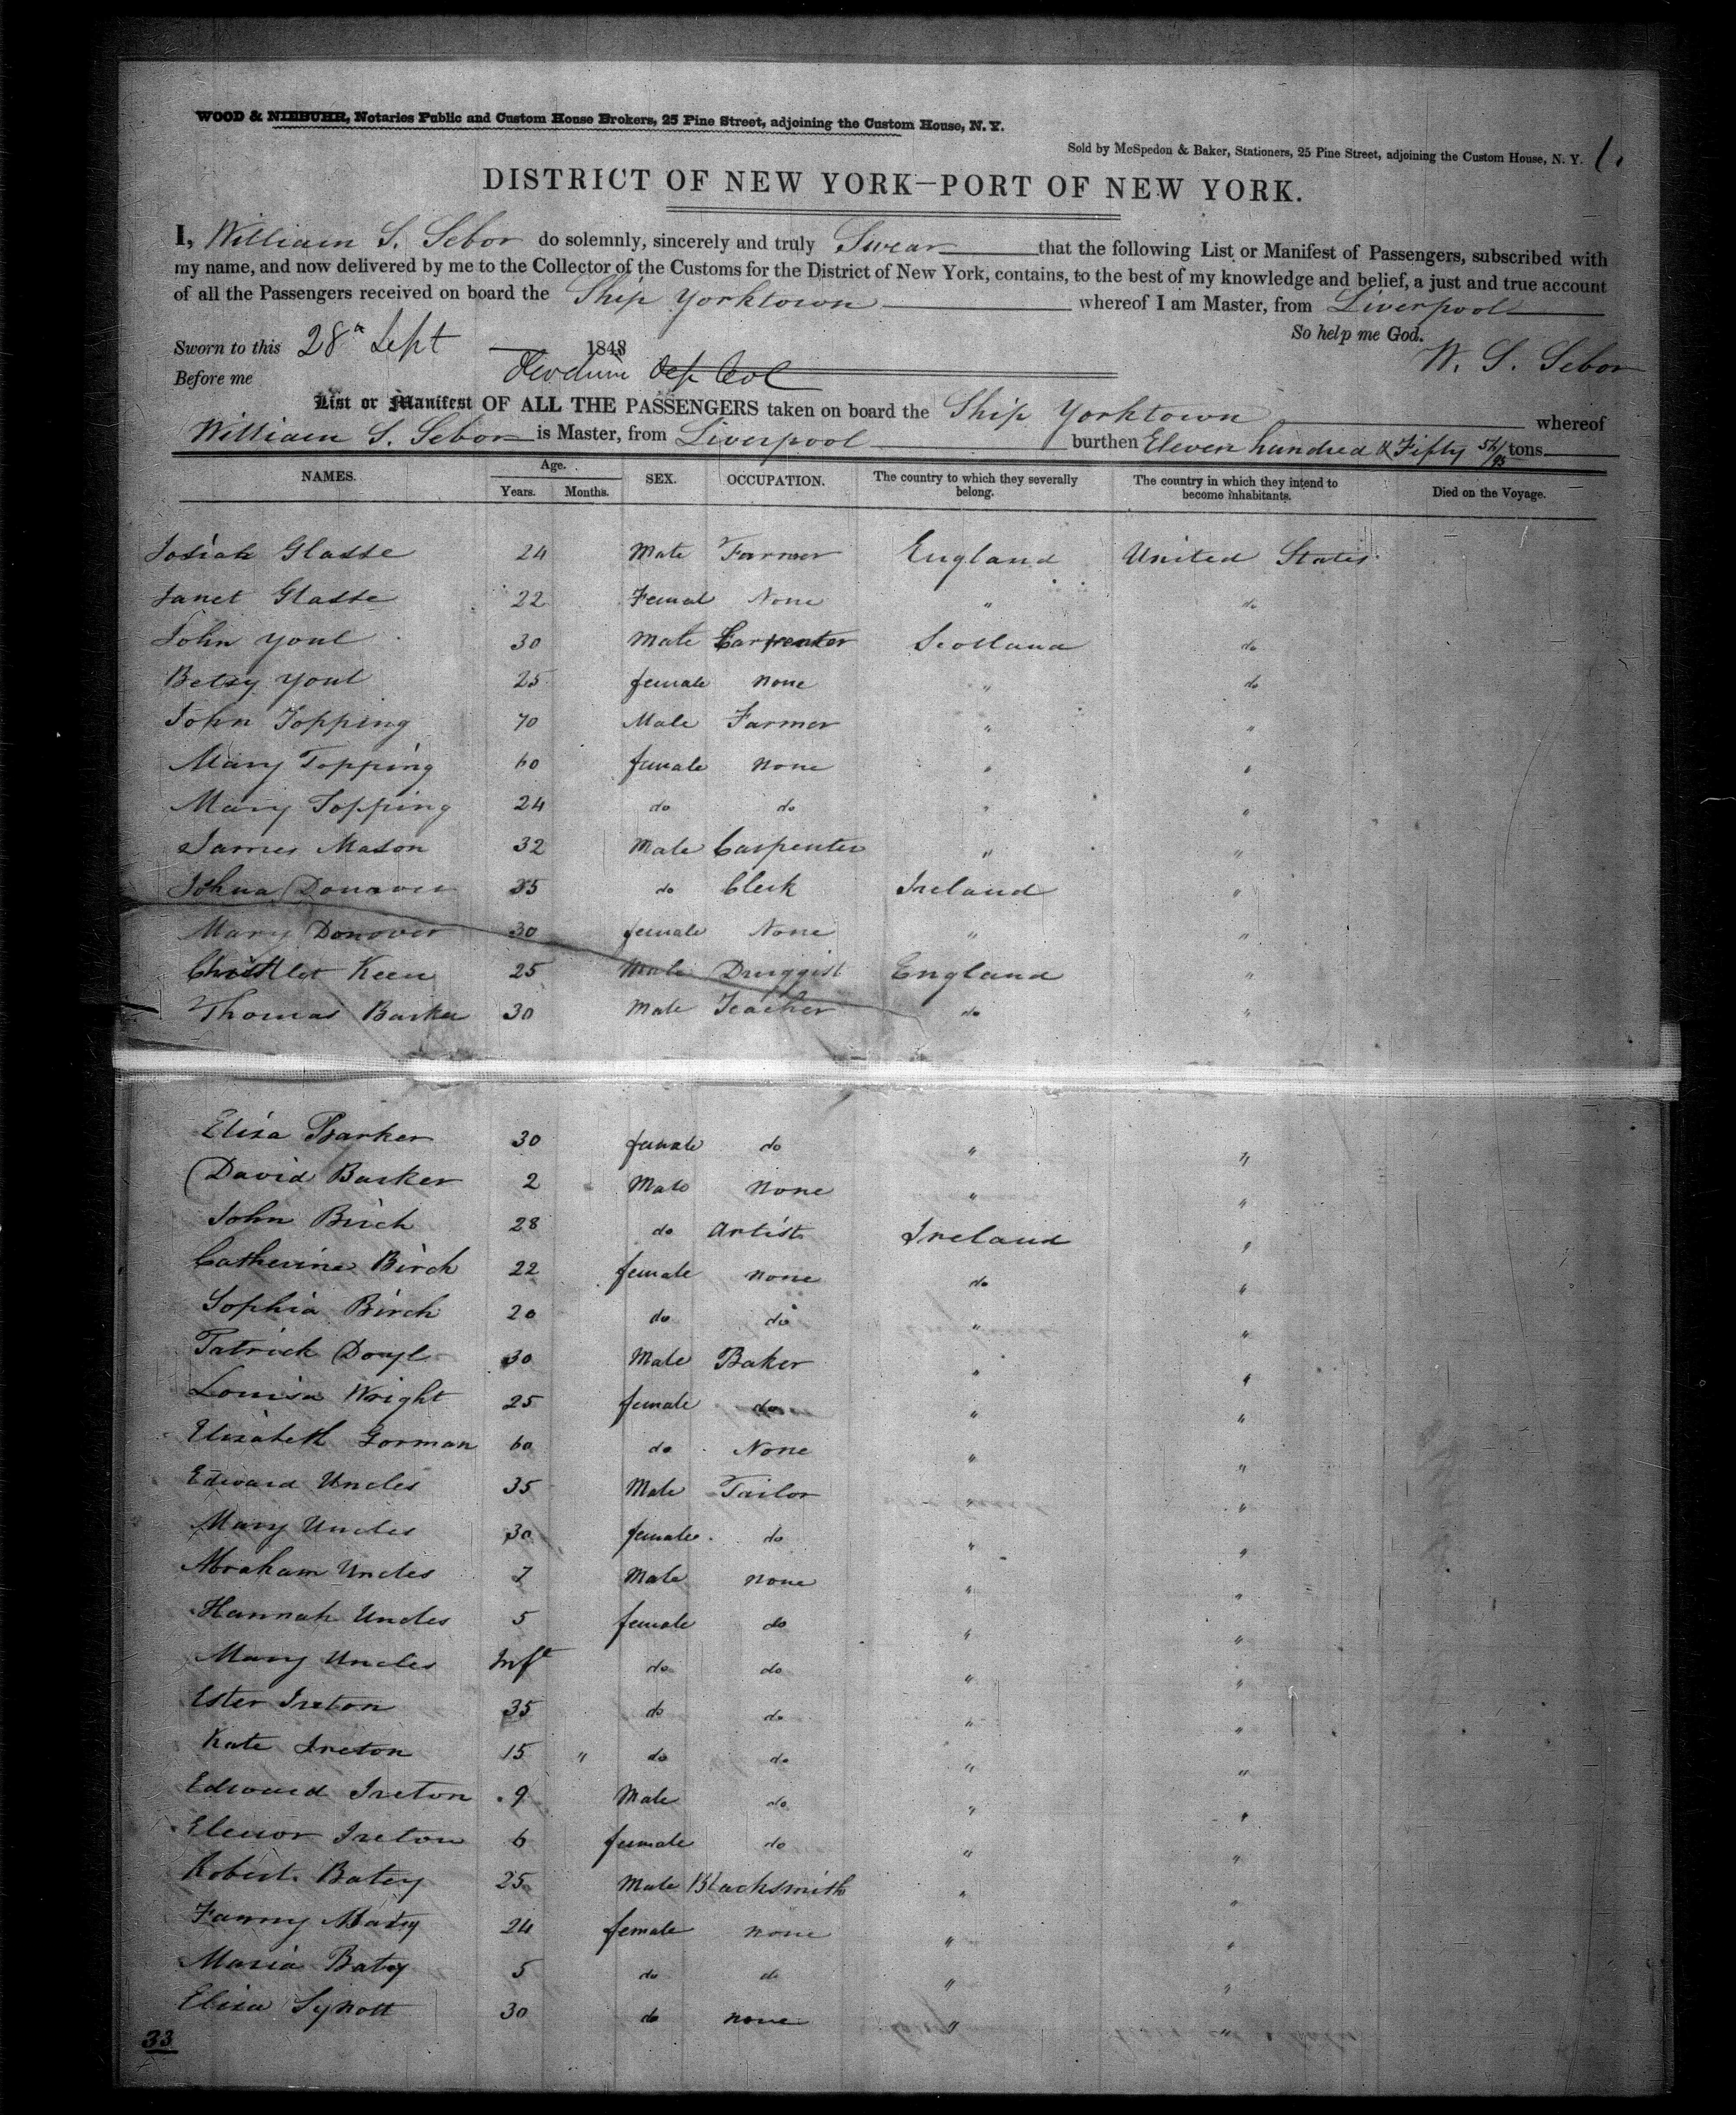 WOOD & NIEBUHR, Notaries Public and Custom House Brokers, 25 Pine Street, adjoining the Custom House, N. Y.
Sold by McSpedon & Baker, Stationers, 25 Pine Street, adjoining the Custom House, N. Y. 1.
DISTRICT OF NEW YORK—PORT OF NEW YORK.
I, William S. Sebor do solemnly, sincerely and truly Swear that the following List or Manifest of Passengers, subscribed with
my name, and now delivered by me to the Collector of the Customs for the District of New York, contains, to the best of my knowledge and belief, a just and true account
of all the Passengers received on board the Ship Yorktown whereof I am Master, from Liverpool
So help me God.
Sworn to this 28th Sept 1848 W. S. Sebor
Before me Dep Col
List or Manifest OF ALL THE PASSENGERS taken on board the Ship Yorktown whereof
William S. Sebor is Master, from Liverpool burthen Eleven hundred & Fifty /95 tons
NAMES. Age. Years. Months. SEX. OCCUPATION. The country to which they severally belong. The country in which they intend to become inhabitants. Died on the Voyage.
Josiah Glasse 24 Male Farmer England United States
Janet Glasse 22 Femal None " do
John Youl 30 Male Carpenter Scotland do
Betsy Youl 25 female none " do
John Topping 70 Male Farmer " "
Mary Topping 60 female none " "
Mary Topping 24 do do " "
James Mason 32 Male Carpenter " "
Donover 35 do Clerk Ireland "
Mary Donover 30 female None " "
Keen 25 Male Druggist England "
Thomas Barker 30 Male Teacher do "
Eliza Barker 30 female do " "
David Barker 2 Male None " "
John Birch 28 do Artist Ireland "
Catherine Birch 22 female none do "
Sophia Birch 20 do do " "
Patrick Doyl 30 Male Baker " "
Louisa Wright 25 female do " "
Elizabeth Gorman 60 do None " "
Edward Uncles 35 Male Tailor " "
Mary Uncles 30 female do " "
Abraham Uncles 7 Male none " "
Hannah Uncles 5 female do " "
Mary Uncles Inft do do " "
Ester Ireton 35 do do " "
Kate Ireton 15 " do do " "
Edward Ireton 9 Male do " "
Elenor Ireton 6 female do " "
Robert Batey 25 Male Blacksmith " "
Fanny Batey 24 female none " "
Maria Batey 5 do do " "
Eliza Synott 30 do none " "
33